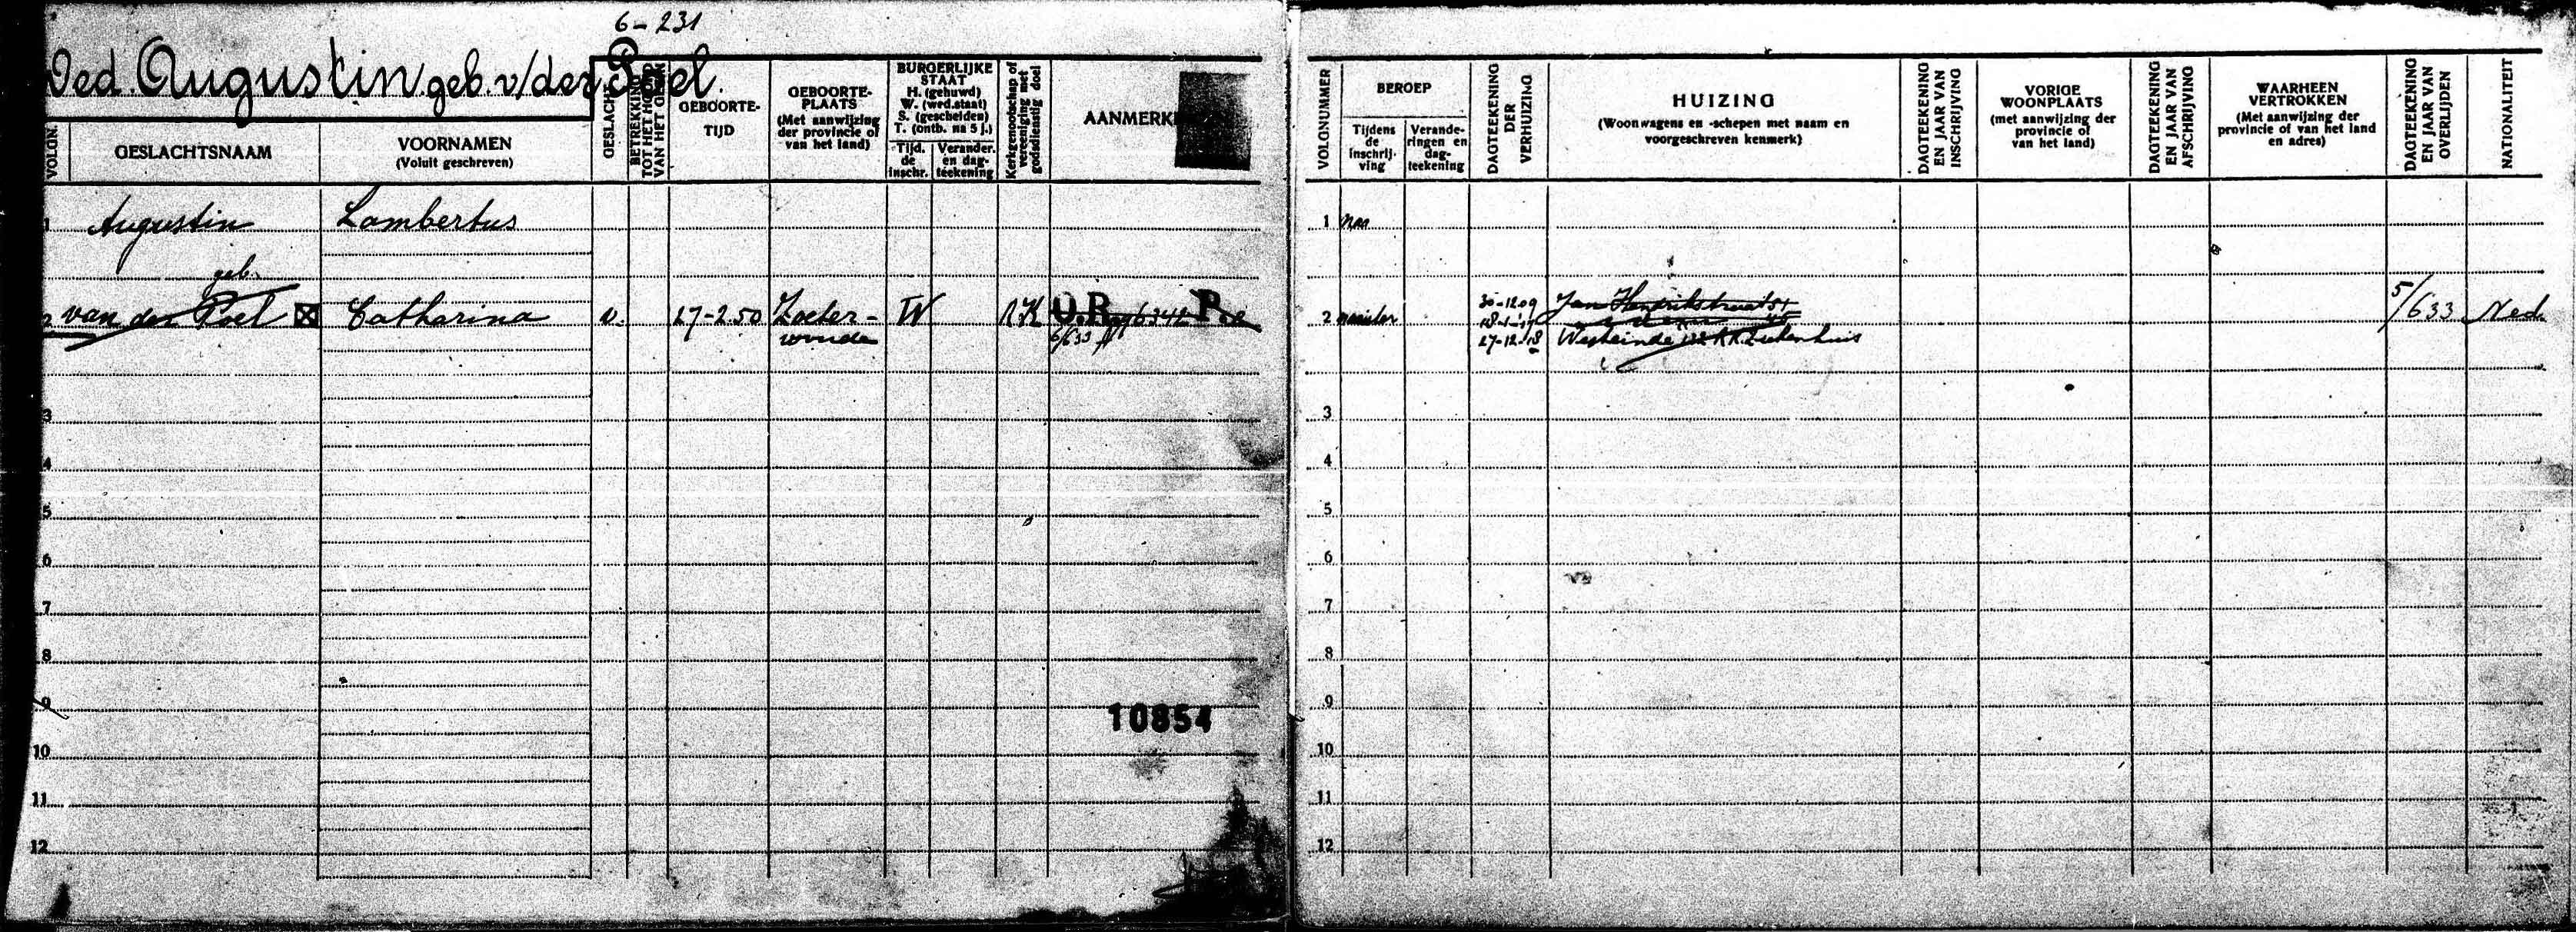 6-231
Wed. Augustin geb. v/der Poel.
VOLGN.
GESLACHTSNAAM
VOORNAMEN
(Voluit geschreven)
GESLACHT
BETREKKING
TOT HET HOOFD
VAN HET GEZIN
GEBOORTE-
TIJD
GEBOORTE-
PLAATS
(Met aanwijzing
der provincie of
van het land)
BURGERLIJKE
STAAT
H. (gehuwd)
W. (wed.staat)
S. (gescheiden)
T. (ontb. na 5 j.)
Tijd.
de
inschr.
Verander.
en dag-
teekening
Kerkgenootschap of
vereeniging met
godsdienstig doel
AANMERK
1 Augustin Lambertus
geb.
2 van der Poel Catharina v. 27-2-50 Zoeter- W RK O.R. 6342
woude 6/633
3
4
5
6
7
8
9
10854
10
11
12
VOLGNUMMER
BEROEP
Tijdens
de
inschrij-
ving
Verande-
ringen en
dag-
teekening
DAGTEEKENING
DER
VERHUIZING
HUIZING
(Woonwagens en -schepen met naam en
voorgeschreven kenmerk)
DAGTEEKENING
EN JAAR VAN
INSCHRIJVING
VORIGE
WOONPLAATS
(met aanwijzing der
provincie of
van het land)
DAGTEEKENING
EN JAAR VAN
AFSCHRIJVING
WAARHEEN
VERTROKKEN
(Met aanwijzing der
provincie of van het land
en adres)
DAGTEEKENING
EN JAAR VAN
OVERLIJDEN
NATIONALITEIT
1
30-12-09 Jan Hendrikstraat 51
2 5/633 Ned.
27-12-18 Westeinde R.K. Ziekenhuis
3
4
5
6
7
8
9
10
11
12